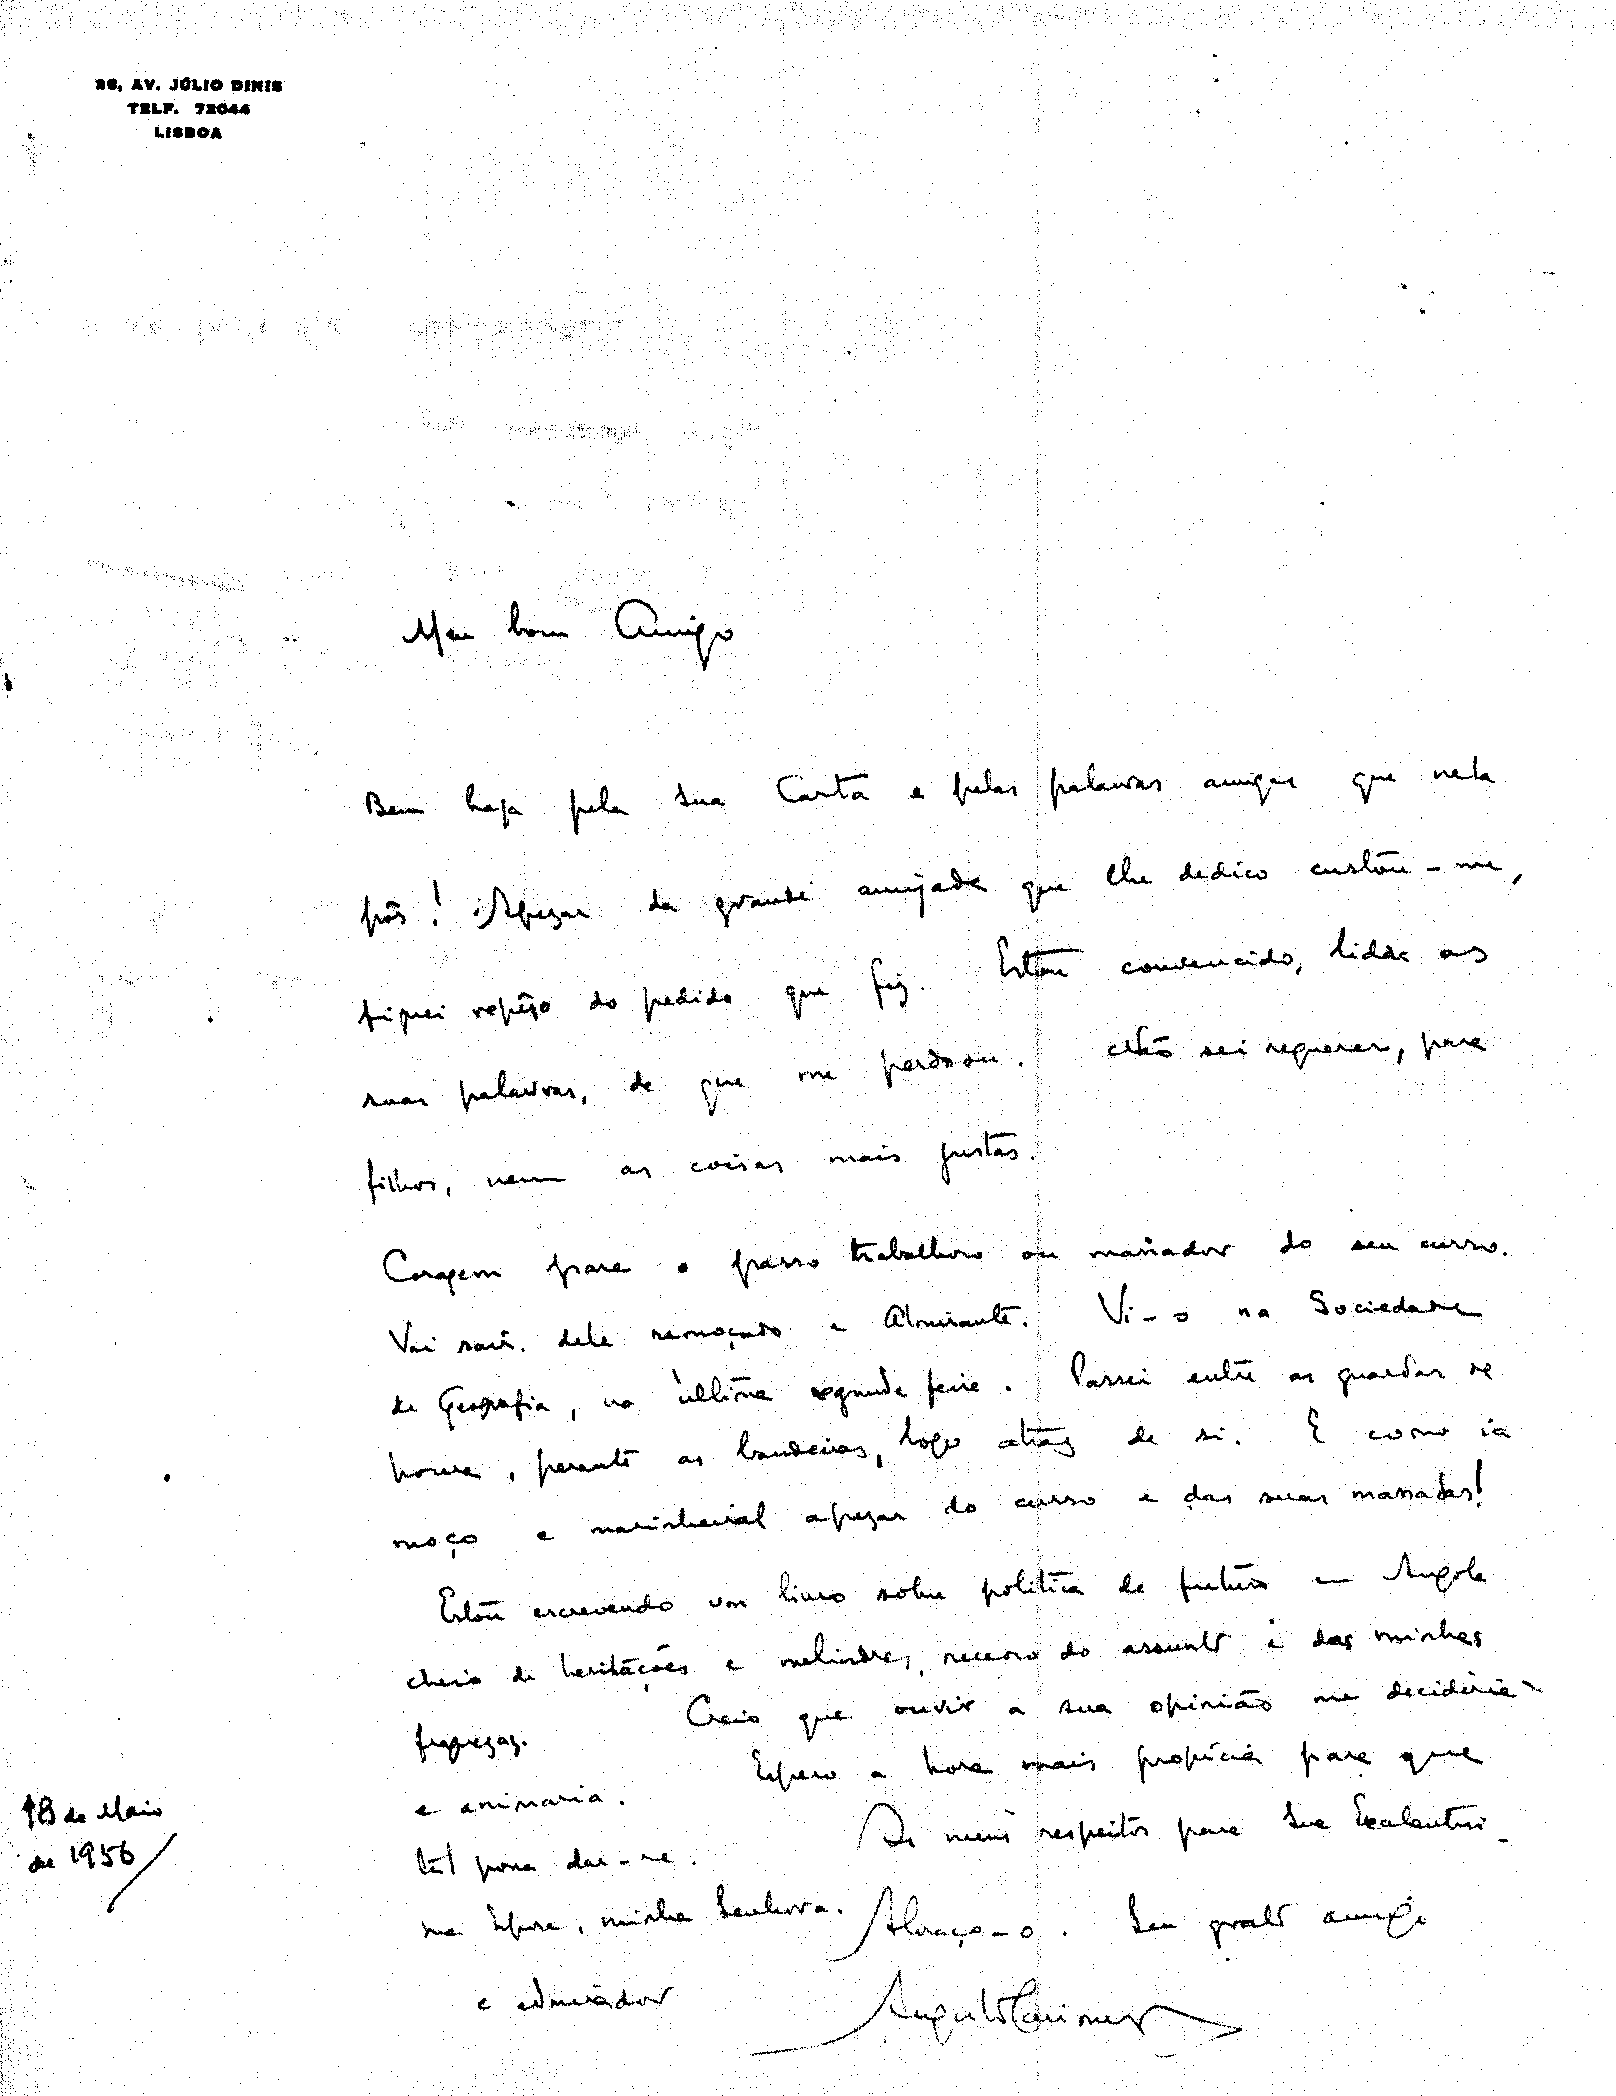 26, AV. JÚLIO DINIS
TELF. 72044
LISBOA
Meu bom Amigo
Bem haja pela sua Carta e pelas palavras amigas que nela
pôs! Apezar da grande amizade que lhe dedico custou-me,
fiquei repêso do pedido que fiz. Estou convencido, lidas as
suas palavras, de que me perdoou. Não sei requerer, para
filhos, nem as coisas mais justas.
Coragem para o passo trabalhoso ou massador do seu curso.
Vai sair dele remoçado e Almirante. Vi-o na Sociedade
de Geografia, na última segunda feira. Passei entre as guardas de
honra, perante as bandeiras, logo atráz de si. E como ia
moço e marinheiral apezar do curso e das suas massadas!
Estou escrevendo um livro sobre politica de futuro em Angola
cheio de hesitações e melindres, receoso do assunto e das minhas
fraquezas. Creio que ouvir a sua opinião me decidiria
e animaria. Espero a hora mais propicia para que
tal possa dar-se. Os meus respeitos para Sua Excelentissi-
ma Esposa, minha Senhora. Abraço-o. Seu grato amigo
e admirador
18 de Maio
de 1956